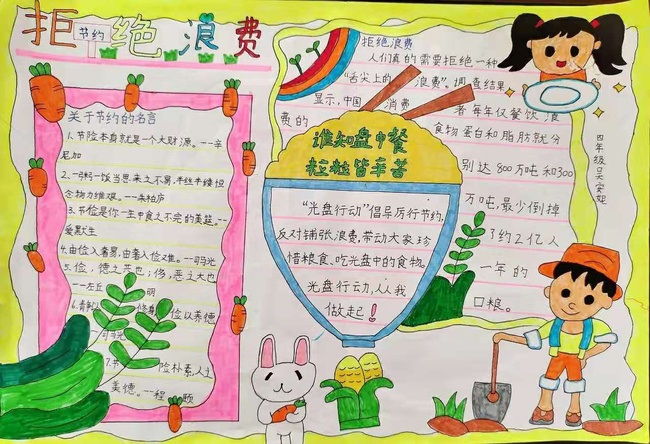 拒绝浪费
节约
关于节约的名言
1.节俭本身就是一个大财源。--辛
尼加
2.一粥一饭当思来之不易,半丝半缕恒
念物力维艰。--朱柏庐
3.节俭是你一生中食之不完的美筵。--
爱默生
4.由俭入奢易,由奢入俭难。--司马光
5.俭,德之共也;侈,恶之大也
--左丘明
6. 修身 俭以养德
7.节 险朴素,人之
美德。--程 颐
谁知盘中餐
粒粒皆辛苦
“光盘行动”倡导厉行节约,
反对铺张浪费,带动大家珍
惜粮食、吃光盘中的食物。
光盘行动,从我
做起!
拒绝浪费
人们真的需要拒绝一种
“舌尖上的浪费”。调查结果
显示,中国消费
者每年仅餐饮浪
费的
食物蛋白和脂肪就分
别达800万吨和300
万吨,最少倒掉
了约2亿人
一年的
口粮。
四年级